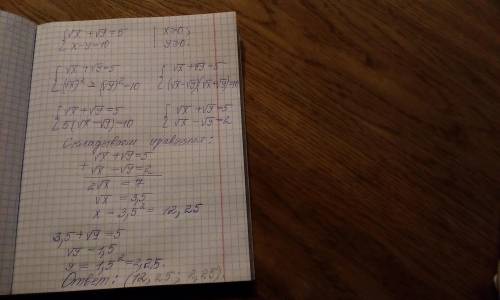 {√x + √y = 5 | x ≥ 0;
{x - y = 10 | y ≥ 0.
{√x + √y = 5 {√x + √y = 5
{(√x)² - (√y)² = 10 {(√x - √y)(√x + √y) = 10
{√x + √y = 5 {√x + √y = 5
{5(√x - √y) = 10 {√x - √y = 2
Складываем уравнения:
√x + √y = 5
+
√x - √y = 2
2√x = 7
√x = 3,5
x = 3,5² = 12,25
3,5 + √y = 5
√y = 1,5
y = 1,5² = 2,25.
Ответ: (12,25; 2,25).